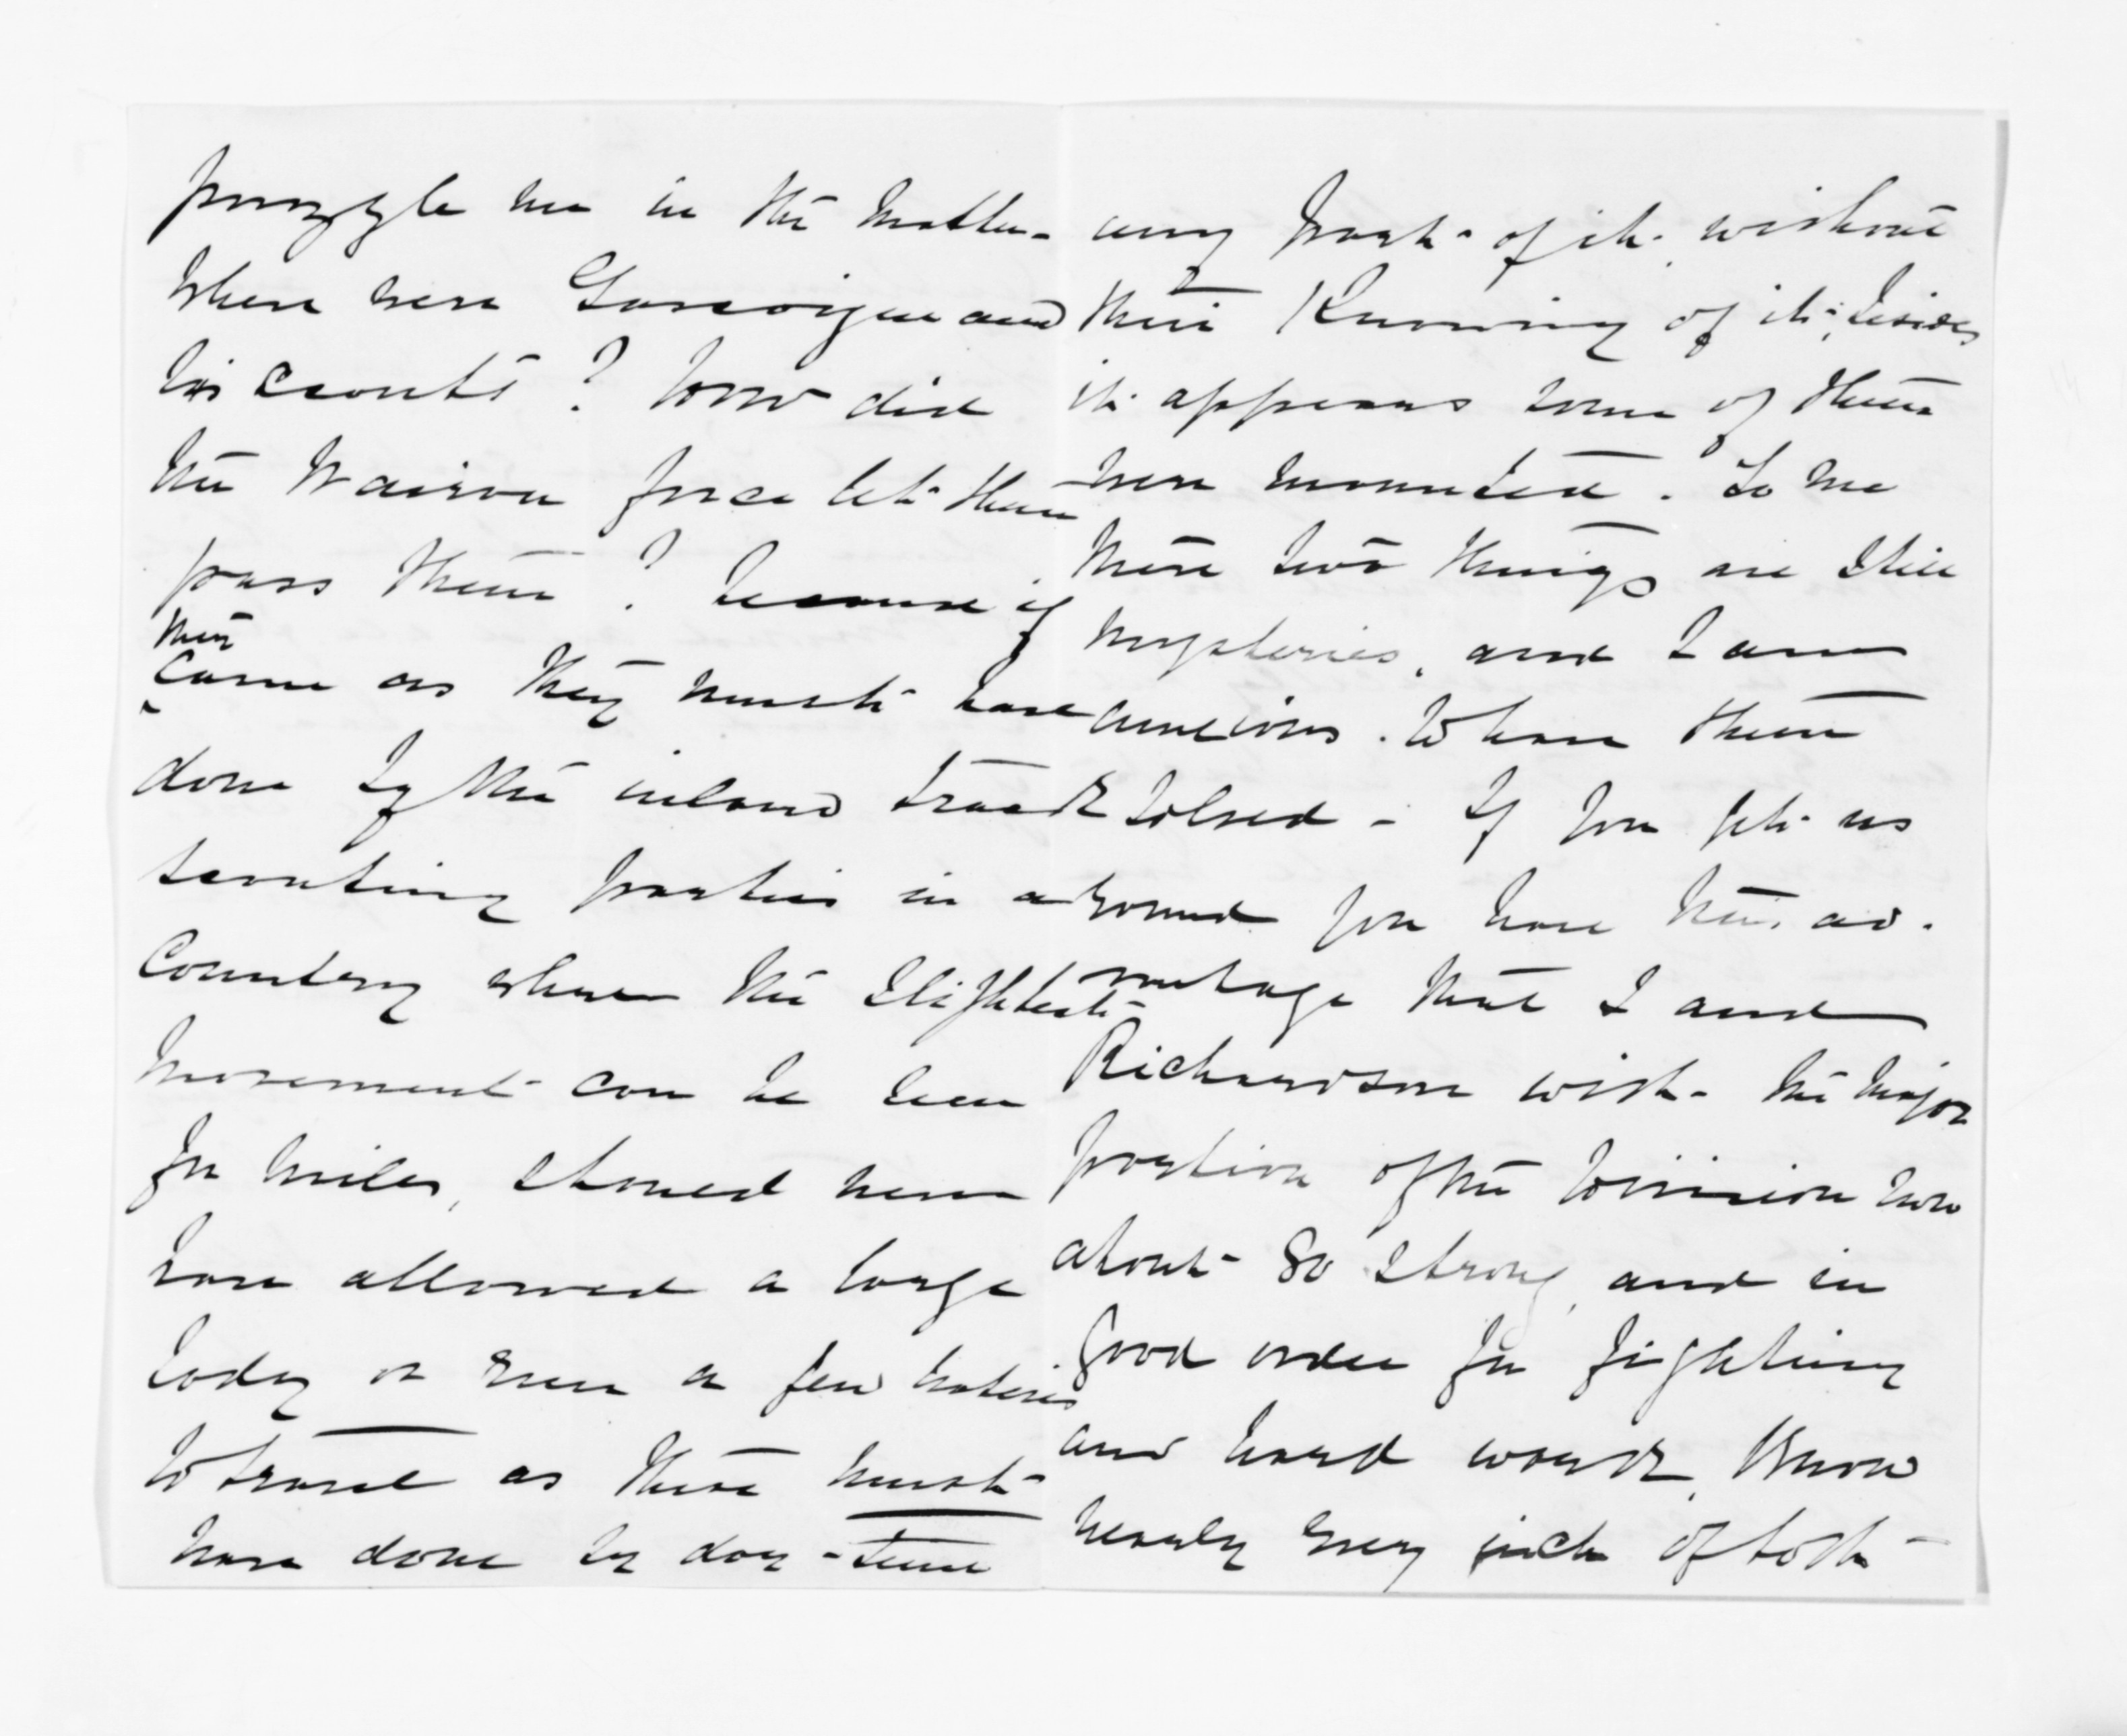 puzzle me in the matter -
Where were Gascoigne and
his scouts? how did
the Wairoa force let them
pass them? because if
they
came as they must have
done by the inland track
scouting parties in a
country where the slightest
movement can be seen
for miles, should never
have allowed a large
body or even a few natives
to travel as these must
have done by day-time
any part of it without
their knowing of it; besides
it appears some of them
were mounted. To me
these two things are still
mysteries, and I am
anxious to have them
solved - If you get us
round you have this ad-
vantage that I and
Richardson with the major
portion of the Division now
about 80 strong, and in
good order for fighting
and hard work, know
nearly every inch of both